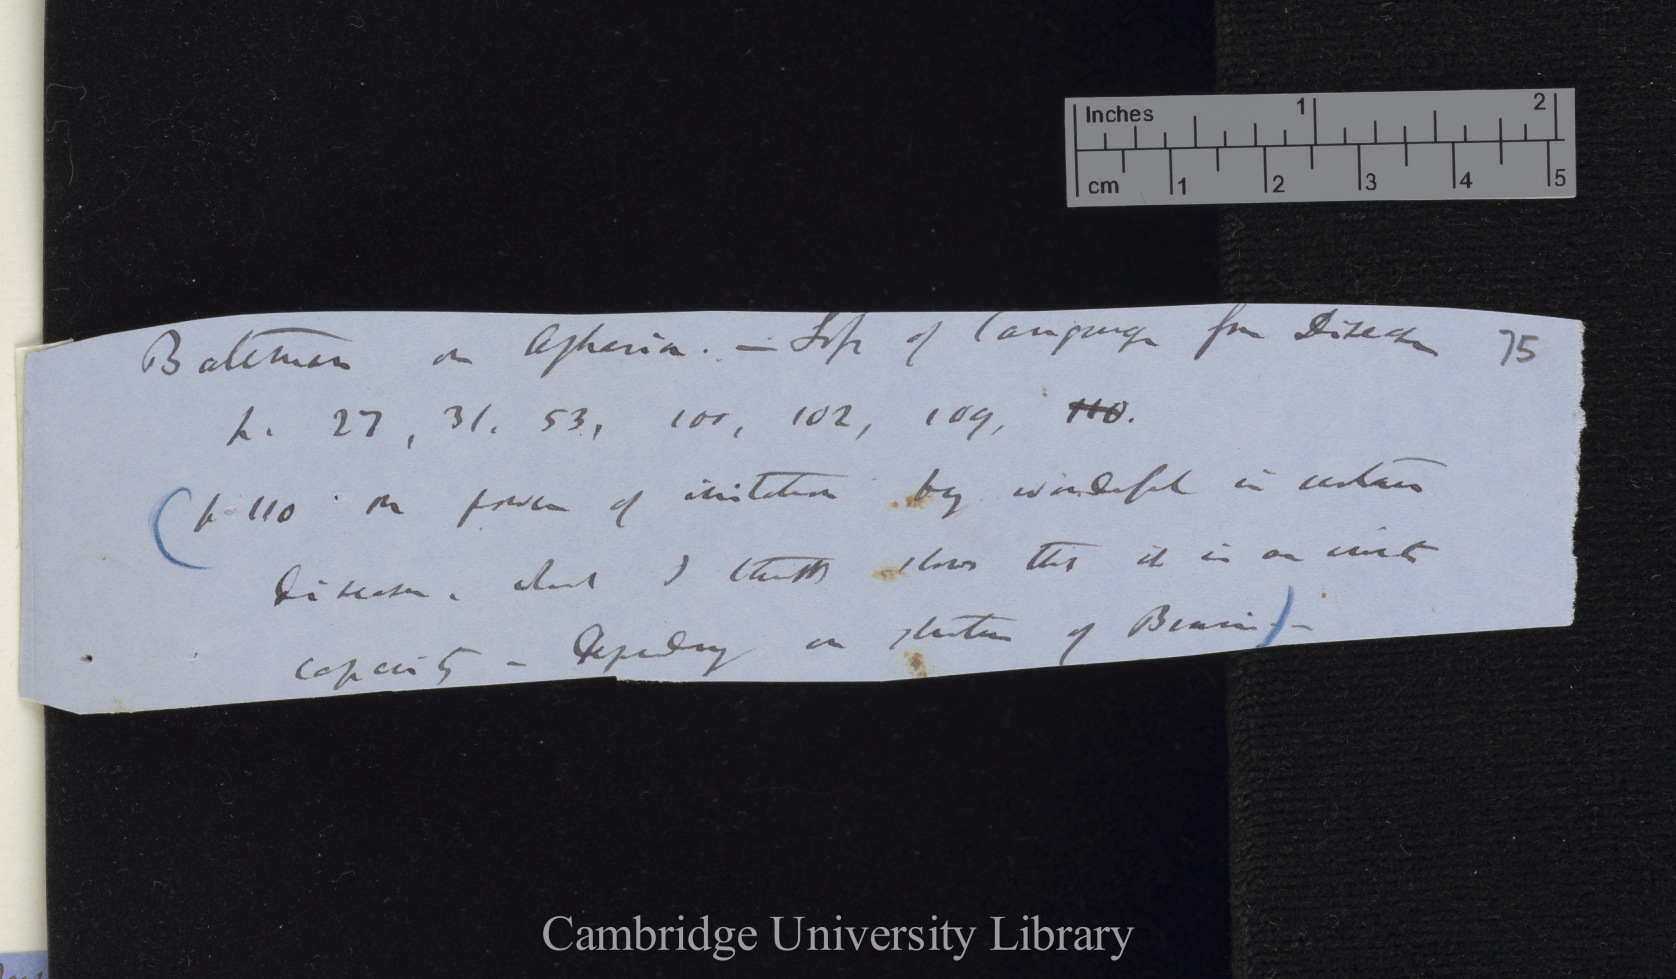 Inches 1 2
cm 1 2 3 4 5
Bateman on Aphasia. — Loss of language from Disease 75
p. 27, 31. 53, 100, 102, 109, 110.
(p. 110 on power of imitation being wonderful in certain
Disease, which I think shows that it is an innate
capacity — Depending on structure of Brain) —
Cambridge University Library